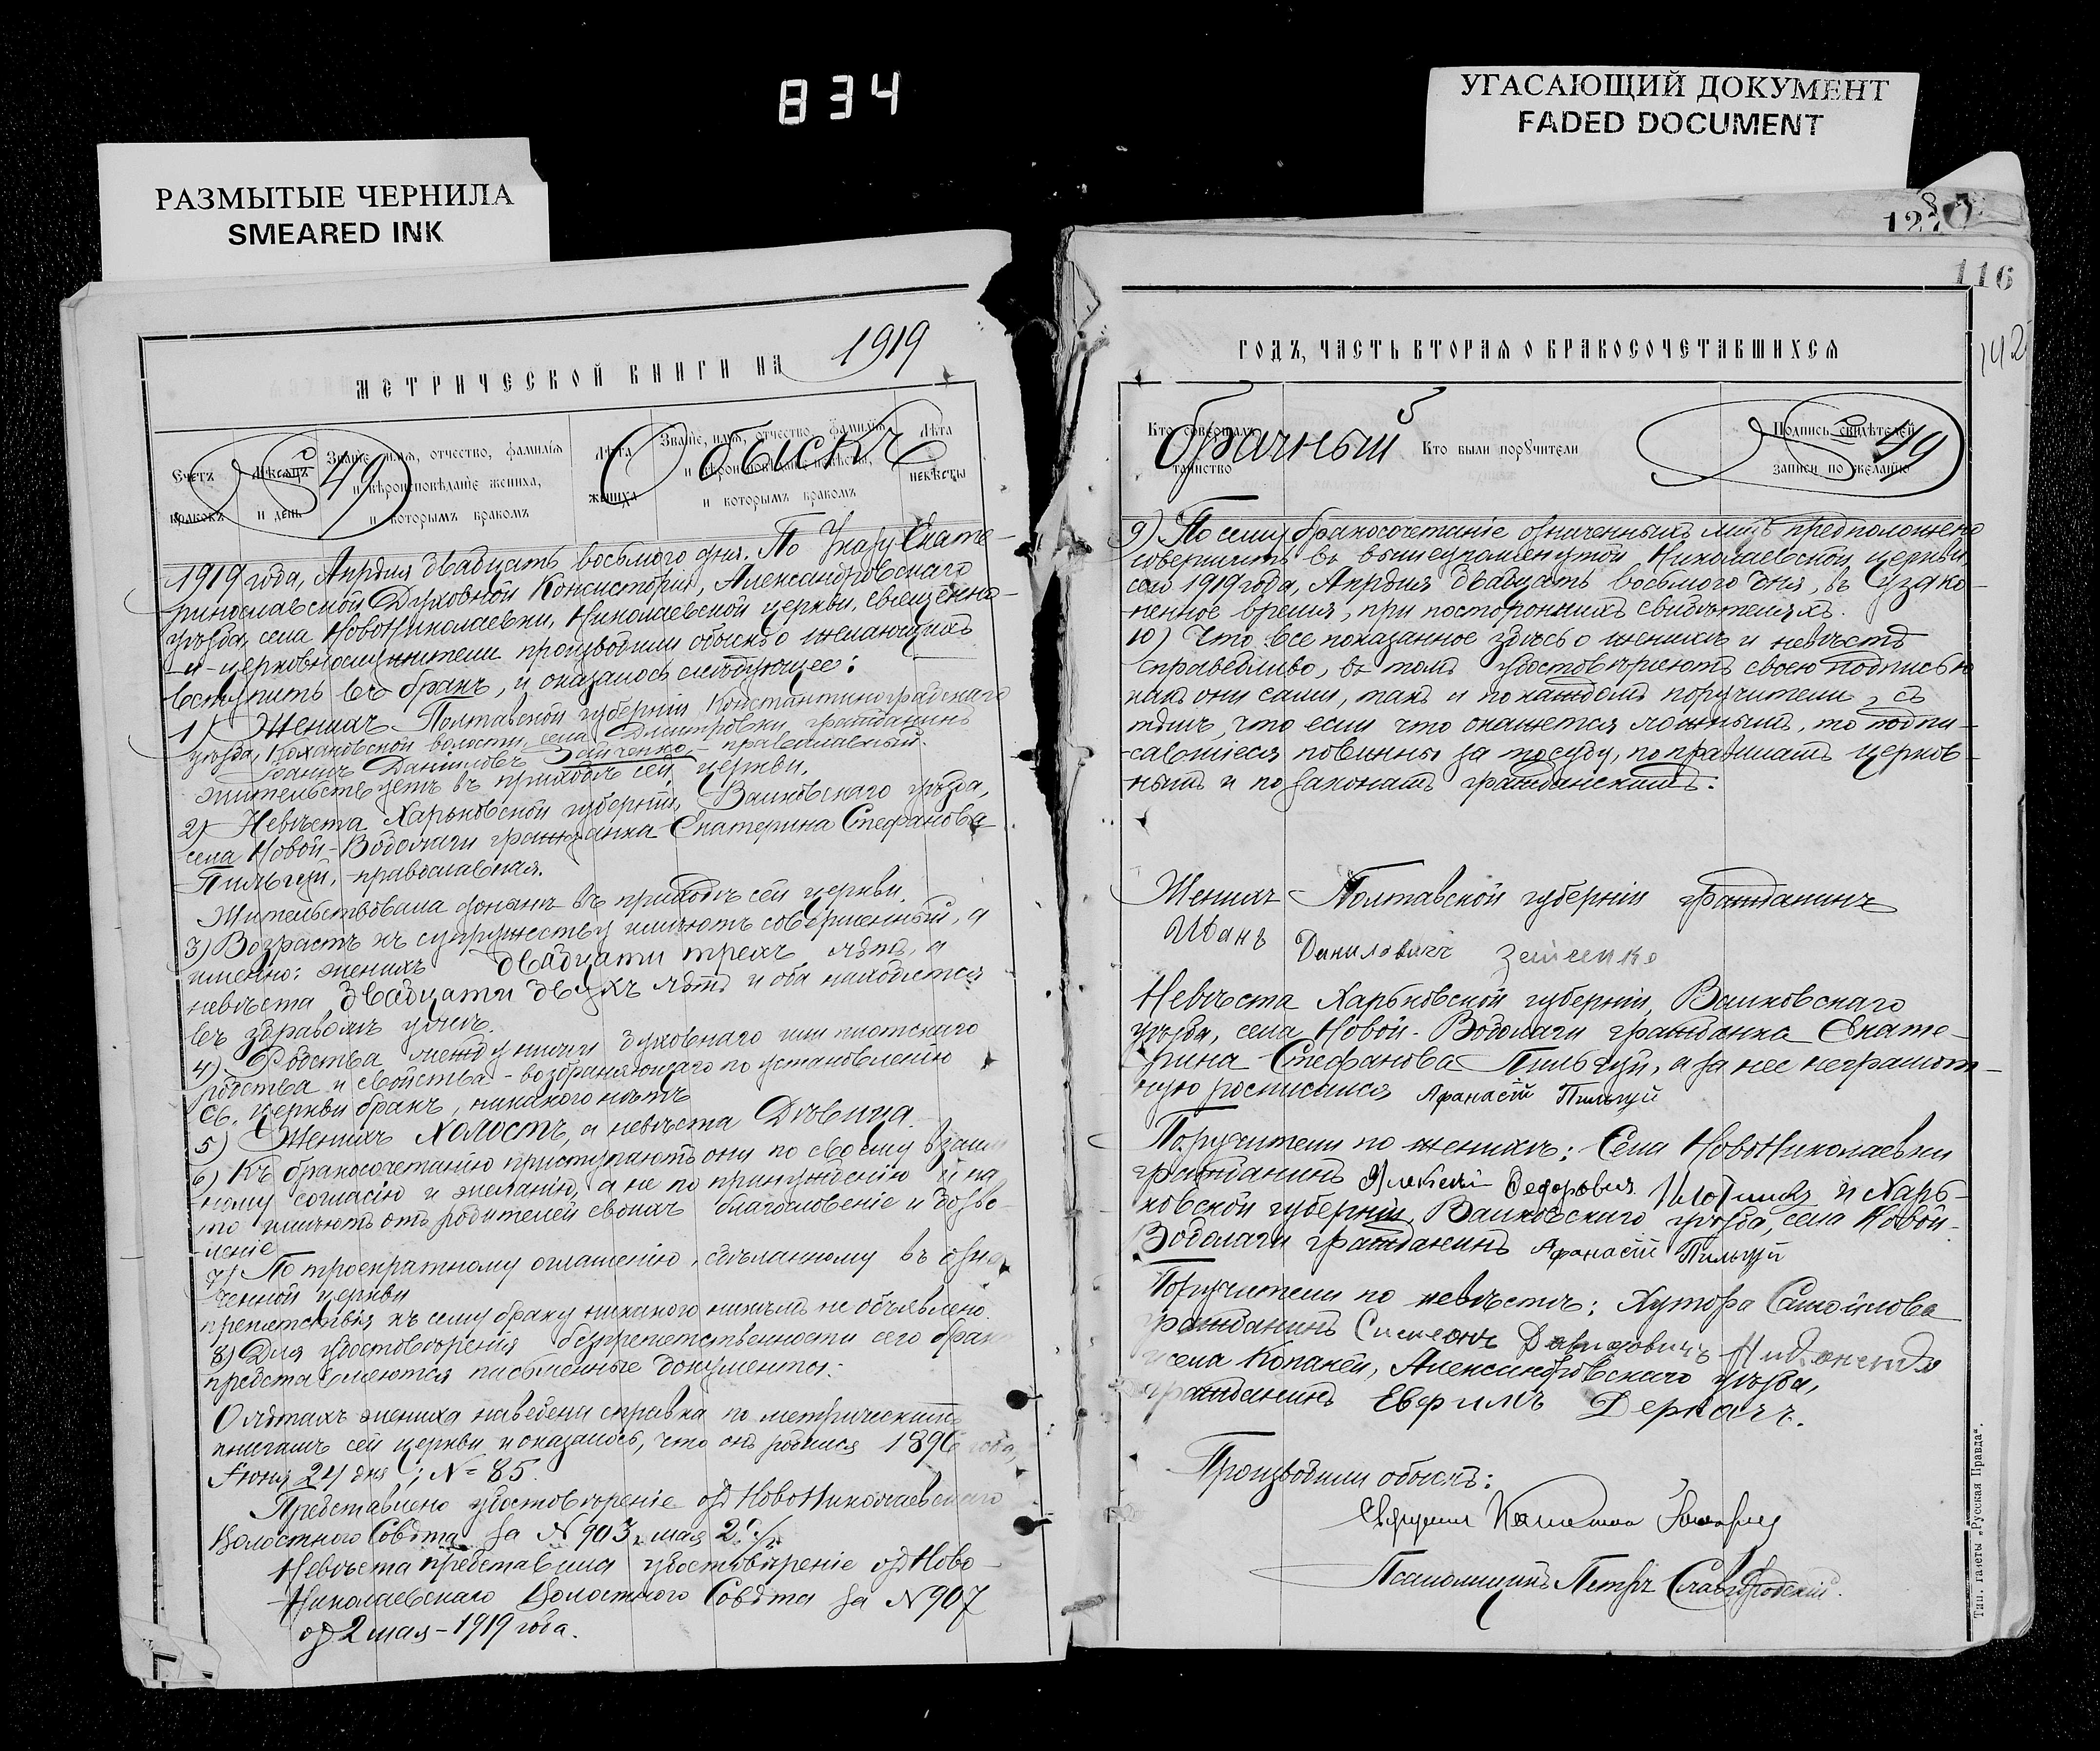 834
УГАСАЮЩИЙ ДОКУМЕНТ
FADED DOCUMENT
РАЗМЫТЫЕ ЧЕРНИЛА
SMEARED INK
МЕТРИЧЕСКОЙ КНИГИ НА 1919
Счетъ браковъ
Мѣсяцъ и день
Званіе, имя, отчество, фамилія и вѣроисповѣданіе жениха, и которымъ бракомъ
Лѣта жениха
Званіе, имя, отчество, фамилія и вѣроисповѣданіе невѣсты, и которымъ бракомъ
Лѣта невѣсты
49 Обыскъ
1919 года, Апрѣля двадцать восьмого дня. По Указу Екате-
ринославской Духовной Консисторіи, Александровскаго
уѣзда, села НовоНиколаевки, Николаевской церкви, священно-
и-церковнослужители производили обыскъ о желающихъ
вступить въ бракъ, и оказалось слѣдующее:
1) Женихъ Полтавской губерніи Константиноградскаго
уѣзда, волости, села Дмитровки, гражданинъ
Іоаннъ Даніиловъ Зайченко - православный.
Жительствуетъ въ приходѣ сей церкви.
2) Невѣста Харьковской губерніи, Валковскаго уѣзда,
села Новой-Водолаги гражданка Екатерина Стефанова
Пильгуй, - православная.
Жительствовала донынѣ въ приходѣ сей церкви.
3) Возрастъ къ супружеству имѣютъ совершенный, а
именно: женихъ двадцати трехъ лѣтъ, а
невѣста двадцати двухъ лѣтъ и оба находятся
въ здравомъ умѣ.
4) Родства между ними духовнаго или плотскаго
родства и свойства - возбраняющаго по установленію
Св. церкви бракъ, никакого нѣтъ
5) Женихъ Холостъ, а невѣста Дѣвица.
6) Къ бракосочетанію приступаютъ они по своему взаим
ному согласію и желанію, а не по принужденію и на
то имѣютъ отъ родителей своихъ благословеніе и дозво-
леніе
7) По троекратному оглашенію, сдѣланному въ озна
ченной церкви
препятствія къ сему браку никакого никѣмъ не объявлено.
8) Для удостовѣренія безпрепятственности сего брака
представляются письменные документы:
О лѣтахъ жениха наведена справка по метрическимъ
книгамъ сей церкви и оказалось, что онъ родился 1896 года,
Іюня 24 дня; № 85.
Представлено удостовѣреніе отъ НовоНиколаевскаго
Волостного Совѣта за № 903, мая 2
Невѣста представила удостовѣреніе отъ Ново-
Николаевскаго Волостного Совѣта за № 907
отъ 2 мая - 1919 года.
116
142
ГОДЪ, ЧАСТЬ ВТОРАЯ О БРАКОСОЧЕТАВШИХСЯ
Кто совершалъ таинство
Кто были поручители
Подпись свидѣтелей записи по желанію
Брачный 49
9) По сему бракосочетаніе означенныхъ лицъ предположено
совершить въ вышеупомянутой Николаевской церкви,
сего 1919 года, Апрѣля двадцать восьмого дня, въ узако-
ненное время, при постороннихъ свидѣтеляхъ.
10) Что все показанное здѣсь о женихѣ и невѣстѣ
справедливо, въ томъ удостовѣряютъ своею подписью
какъ они сами, такъ и по каждомъ поручители, съ
тѣмъ, что если что окажется ложнымъ, то подпи-
-савшіеся повинны за то суду, по правиламъ церков-
нымъ и по законамъ гражданскимъ:
Женихъ - Полтавской губерніи гражданинъ
Иванъ Даниловичъ
Невѣста Харьковской губерніи, Валковскаго
уѣзда, села Новой-Водолаги гражданка Екате-
рина Стефанова Пильгуй, а за нее неграмот-
ную росписался Афанасій Пильгуй
Поручители по женихѣ: Села НовоНиколаевки
гражданинъ Алексей Федоровичъ и Харь-
ковской губерніи, Валковскаго уѣзда, села Новой-
Водолаги гражданинъ Афанасій Пильгуй
Поручители по невѣстѣ: Хутора Самойлова
гражданинъ Симеонъ Давидовичъ
и села Копаней, Александровскаго уѣзда,
гражданинъ Ефримъ Деркачъ.
Производили обыскъ:
Псаломщикъ Петръ Славгородскій.
Тип. газеты „Русская Правда“.